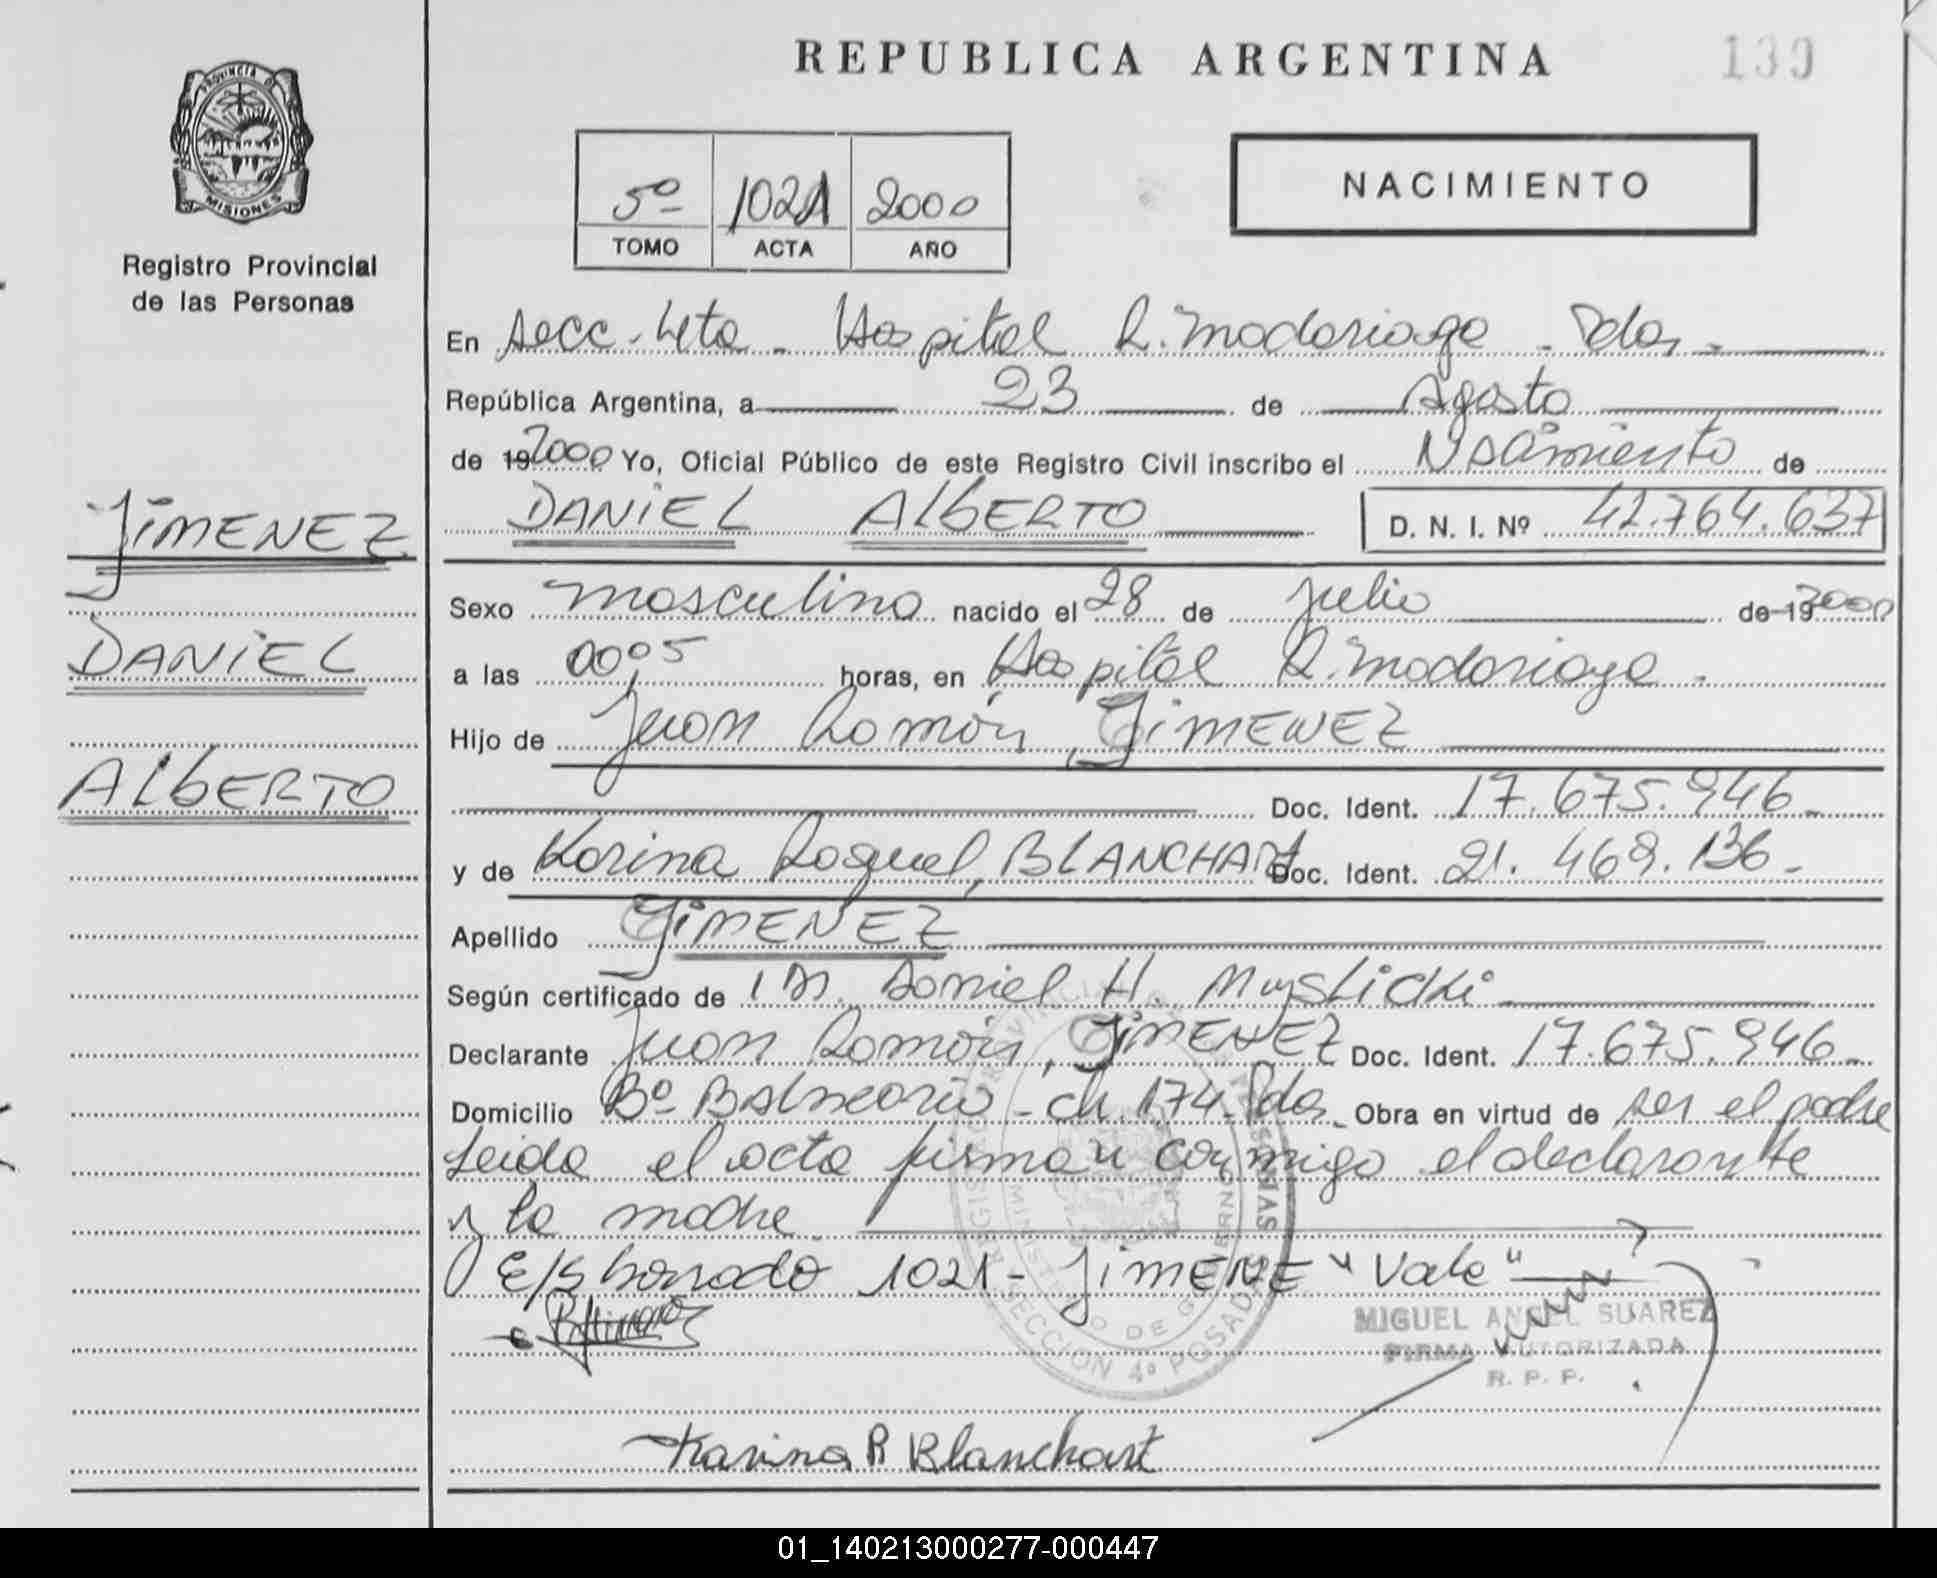 REPUBLICA ARGENTINA
139
PROVINCIA DE
MISIONES
Registro Provincial
de las Personas
5º 1021 2000
TOMO ACTA AÑO
NACIMIENTO
En Secc. 4ta - Hospital R. Madariaga - Pdas -
República Argentina, a 23 de Agosto
de 19 2000 Yo, Oficial Público de este Registro Civil inscribo el Nacimiento de
DANIEL ALBERTO D. N. I. Nº 42.764.637
JIMENEZ
DANIEL
ALBERTO
Sexo masculino nacido el 28 de Julio de 19 2000
a las 00:05 horas, en Hospital R. Madariaga.
Hijo de Juan Ramón, JIMENEZ
Doc. Ident. 17.675.946-
y de Karina Raquel, BLANCHART Doc. Ident. 21.469.136-
Apellido JIMENEZ
Según certificado de Daniel H. Muslicki
Declarante Juan Ramón, JIMENEZ Doc. Ident. 17.675.946-
Domicilio Bº Balneario - ch 174 - Pdas. Obra en virtud de ser el padre
Leida el acta firman conmigo el declarante
y la madre
E/S borrado 1021 - JIMENE "Vale"
MIGUEL ANGEL SUAREZ
FIRMA AUTORIZADA
R. P. P.
SECCION 4ª POSADAS
Karina R Blanchart
01_140213000277-000447